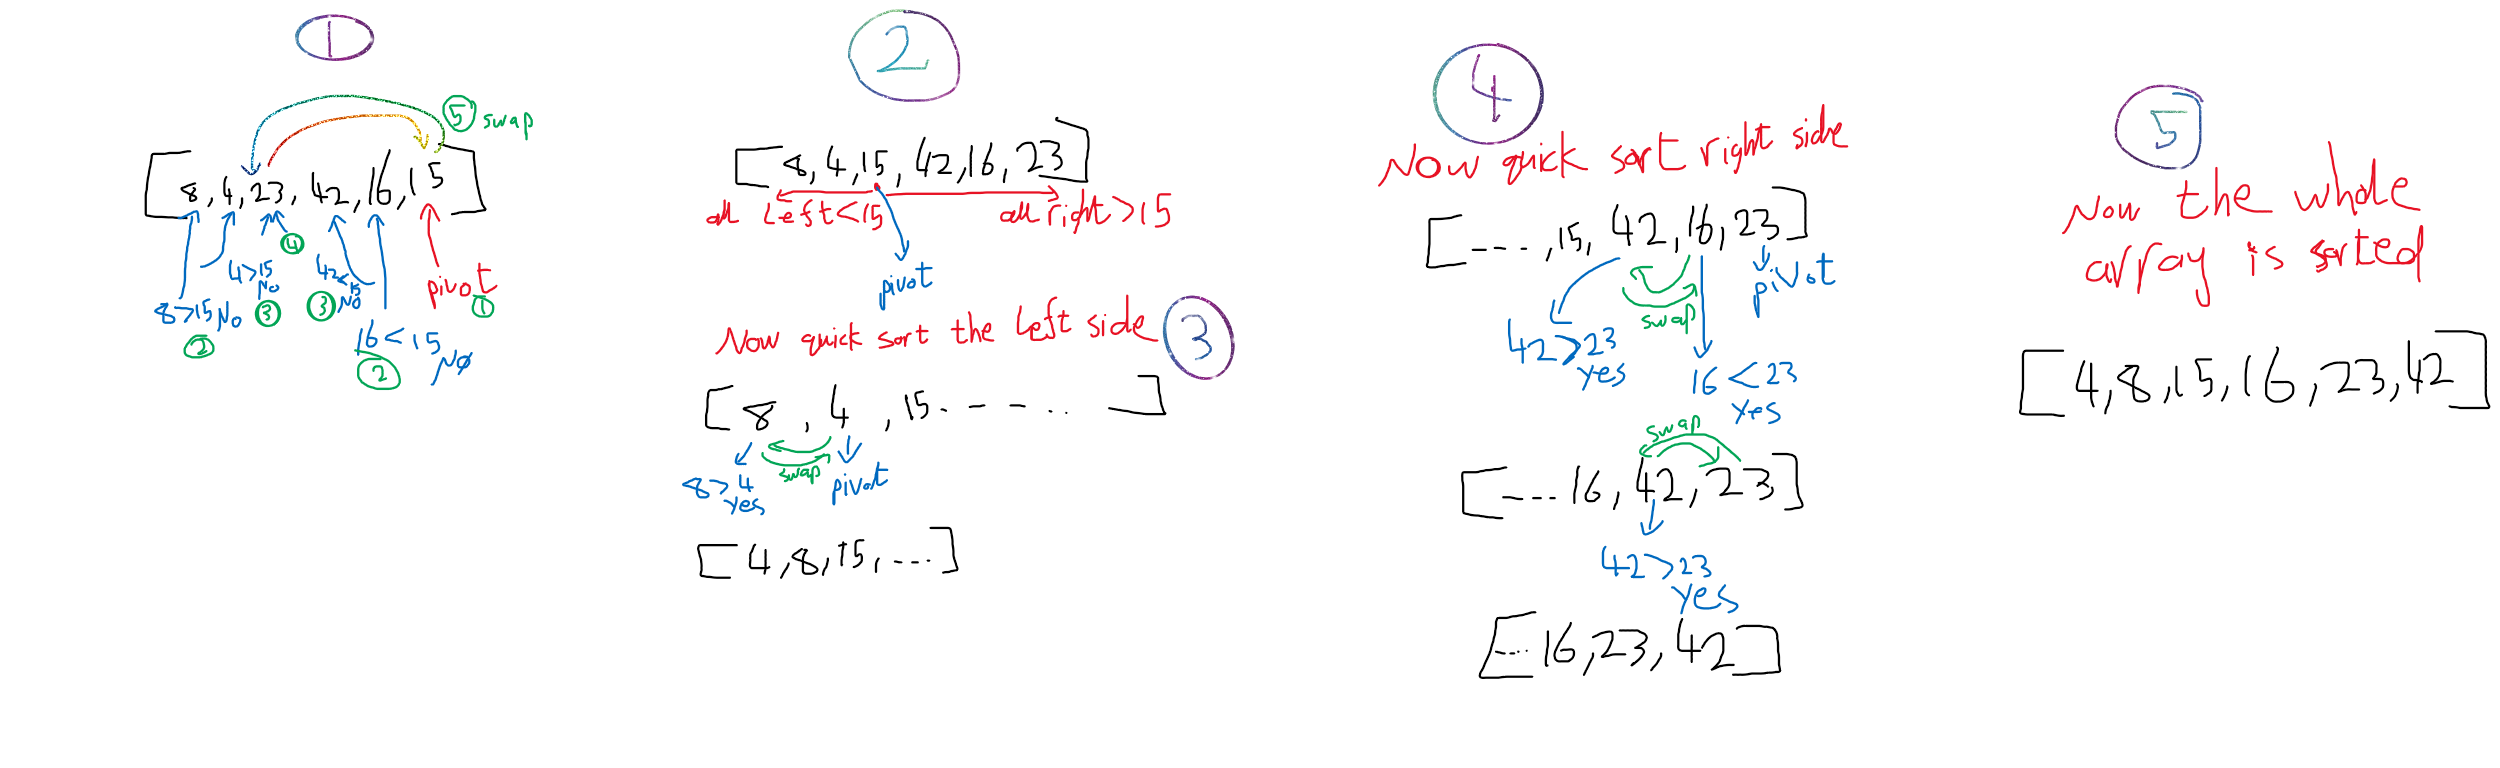 1
5 swap
[8,4,23,42,16,15]
4
4>15 No
3
42<15 No
3
pivot
1
8>15 No
2
16<15 No
2
2
[8,4,15,42,16,23]
all left<15
all right>15
pivot
Now quick sort the left side
3
[8,4,15------]
8>4 yes
swap
pivot
[4,8,15,...]
4
Now quick sort right side
[---,15,42,16,23]
swap
pivot
42>23 yes
16<23 yes
swap
[---16,42,23]
42>23 yes
[...16,23,42]
5
Now the whole
array is sorted
[4,8,15,16,23,42]